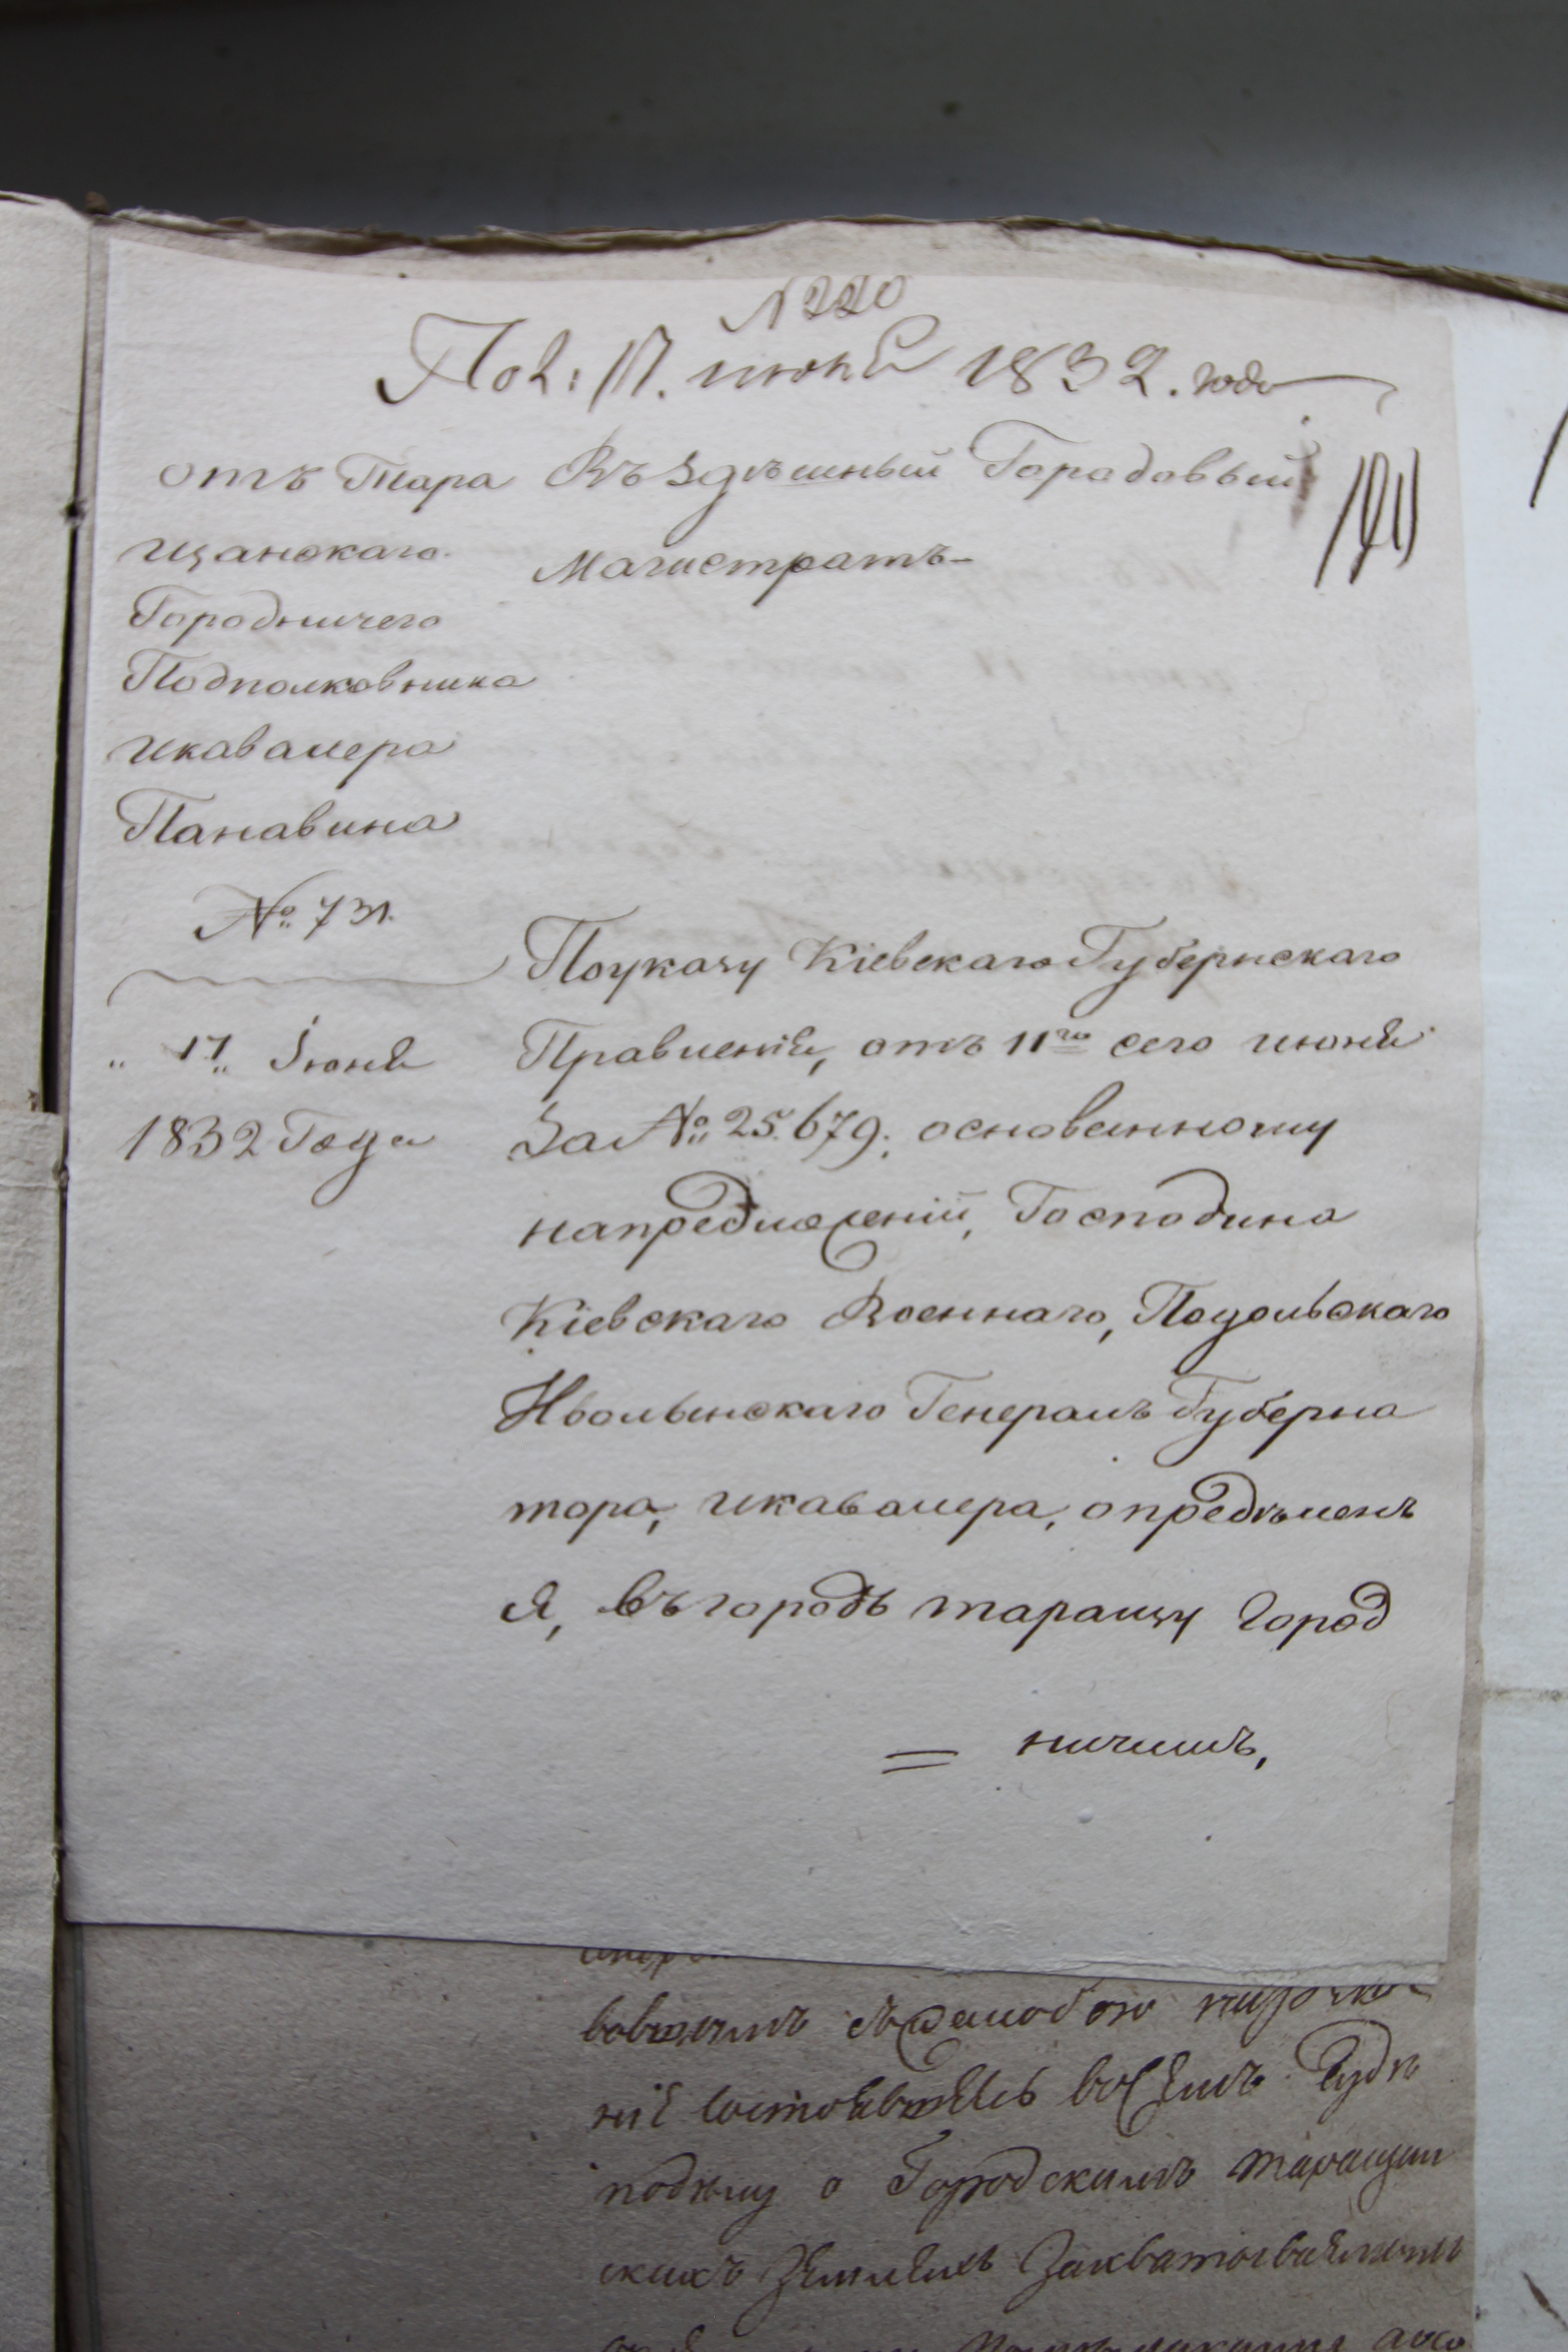 N 220
Пол: 17. июня 1832. года
отъ Тара
щанскаго
Городничего
Подполковника
икавалера
Панавина
№ 731.
" 17 " Іюня
1832 Года
Въ Здѣшный Горадовый
Магистратъ-
Поуказу Кіевскаго Губернскаго
Правленія, отъ 11го сего июня
За № 25.679. основанному
напредложеніи, Господина
Кіевскаго Военнаго, Подольскаго
Иволынскаго Генералъ Губерна
тора, икавалера, опредѣленъ
я, въ городъ таращу Город
= ничимъ,
съ
нія состоявшемъ
подѣлу о Городскимъ таращан
скихъ Земляхъ